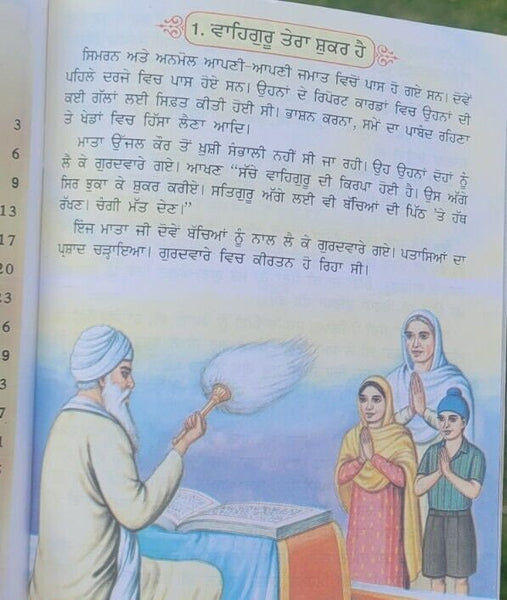 1. ਵਾਹਿਗੁਰੂ ਤੇਰਾ ਸ਼ੁਕਰ ਹੈ
ਸਿਮਰਨ ਅਤੇ ਅਨਮੋਲ ਆਪਣੀ-ਆਪਣੀ ਜਮਾਤ ਵਿਚੋਂ ਪਾਸ ਹੋ ਗਏ ਸਨ। ਦੋਵੇਂ
ਪਹਿਲੇ ਦਰਜੇ ਵਿਚ ਪਾਸ ਹੋਏ ਸਨ। ਉਹਨਾਂ ਦੇ ਰਿਪੋਰਟ ਕਾਰਡਾਂ ਵਿਚ ਉਹਨਾਂ ਦੀ
ਕਈ ਗੱਲਾਂ ਲਈ ਸਿਫ਼ਤ ਕੀਤੀ ਹੋਈ ਸੀ। ਭਾਸ਼ਨ ਕਰਨਾ, ਸਮੇਂ ਦਾ ਪਾਬੰਦ ਰਹਿਣਾ
ਤੇ ਖੇਡਾਂ ਵਿਚ ਹਿੱਸਾ ਲੈਣਾ ਆਦਿ।
ਮਾਤਾ ਉੱਜਲ ਕੌਰ ਤੋਂ ਖ਼ੁਸ਼ੀ ਸੰਭਾਲੀ ਨਹੀਂ ਸੀ ਜਾ ਰਹੀ। ਉਹ ਉਹਨਾਂ ਦੋਹਾਂ ਨੂੰ
ਲੈ ਕੇ ਗੁਰਦਵਾਰੇ ਗਏ। ਆਖਣ “ਸੱਚੇ ਵਾਹਿਗੁਰੂ ਦੀ ਕਿਰਪਾ ਹੋਈ ਹੈ। ਉਸ ਅੱਗੇ
ਸਿਰ ਝੁਕਾ ਕੇ ਸ਼ੁਕਰ ਕਰੀਏ। ਸਤਿਗੁਰੂ ਅੱਗੇ ਲਈ ਵੀ ਬੱਚਿਆਂ ਦੀ ਪਿੱਠ 'ਤੇ ਹੱਥ
ਰੱਖਣ। ਚੰਗੀ ਮੱਤ ਦੇਣ।”
ਇੰਜ ਮਾਤਾ ਜੀ ਦੋਵੇਂ ਬੱਚਿਆਂ ਨੂੰ ਨਾਲ ਲੈ ਕੇ ਗੁਰਦਵਾਰੇ ਗਏ। ਪਤਾਸਿਆਂ ਦਾ
ਪ੍ਰਸ਼ਾਦ ਚੜ੍ਹਾਇਆ। ਗੁਰਦਵਾਰੇ ਵਿਚ ਕੀਰਤਨ ਹੋ ਰਿਹਾ ਸੀ।
3
6
9
13
17
20
23
6
9
3
7